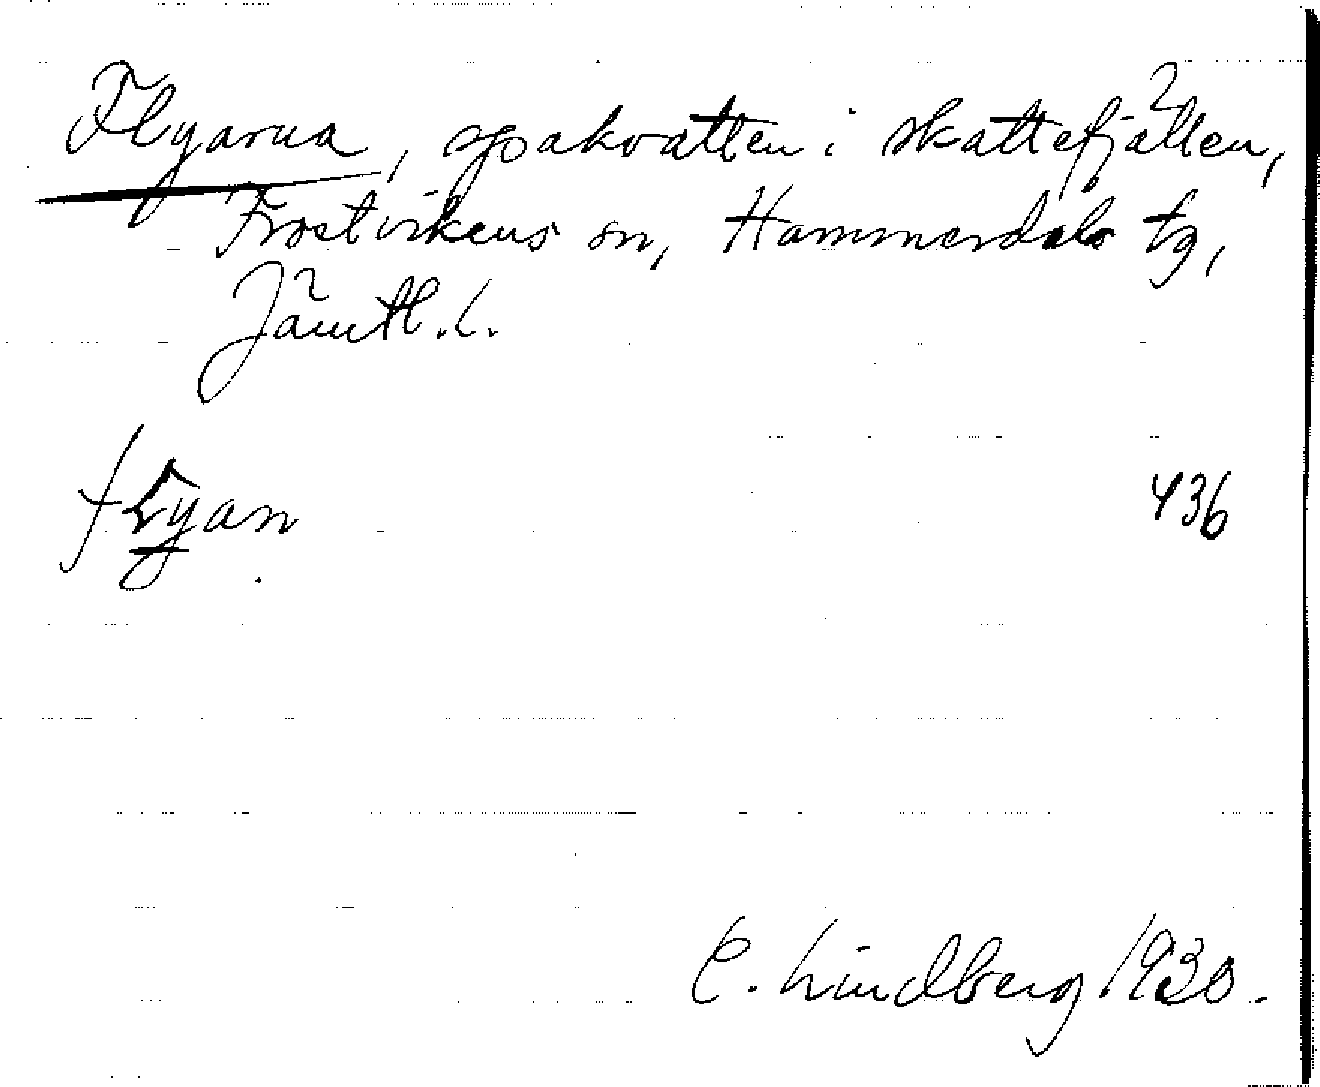 Flyarna, spakvatten i skattefjällen,
Frostvikens sn, Hammerdals tg,
Jämtl. l.
436
E. Lindberg 1930.